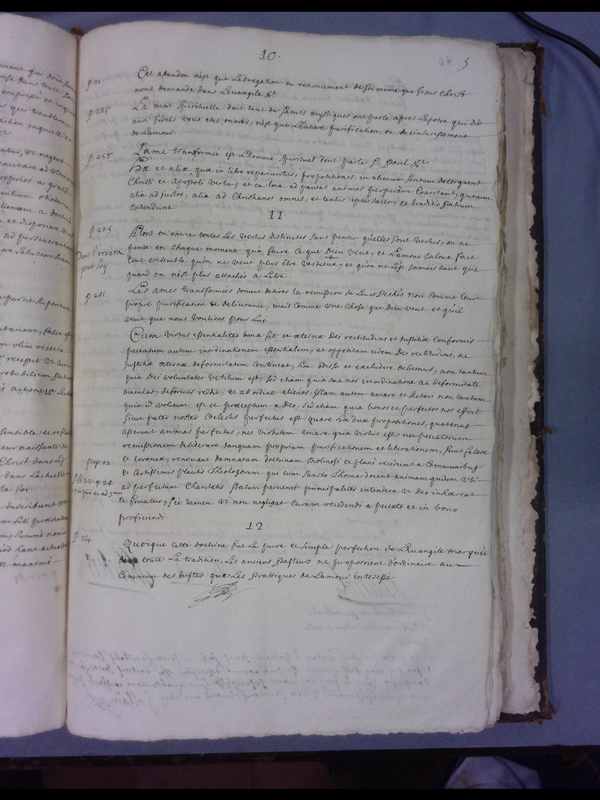 10.
5
p. 72. Cet abandon n'est que L'abnegation ou renoncement de soi meme que Jesus Christ
nous demande dans L'euangile &c.
p. 225. La mort spirituelle dont tant de saints mystiques ont parle apres L'apotre qui dit
aux fideles vous etes morts, n'est que L'entiere purification ou desinteressement
de L'amour.
p. 228. L'ame transformée est L'homme spirituel dont parle St. Paul &c.
Hæ et aliæ, quæ in libro reperiuntur, propositiones in alienum sensum detorquent
Christi et Apostoli verba, et ea loca ad paucas animas perperam Coarctant, quorum
alia ad justos, alia ad Christianos omnes, ex textus ipsius serie, et traditis Patrum
intendunt
11
p. 225. Alors on exerce toutes Les vertus distinctes sans penser qu'elles sont vertus, on ne
pense en chaque moment qu'a faire ce que Dieu veut, et L'amour jaloux fait
Dans L'errata tout ensemble qu'on ne veut plus être vertueux, et qu'on ne L'est jamais tant que
pour soy quand on n'est plus attaché a L'etre.
p. 241. Les ames transformées doivent desirer La remission de Leurs Pechés non comme leur
propre purification et delivrance, mais comme une chose que Dieu veut et qu'il
veut que nous voulions pour Luy.
Cum virtus essentialiter bona sit et æternæ Dei rectitudini et justitiæ conformis
peccatum autem inordinationem essentialem, et oppositam eidem Dei rectitudini, ac
justitiæ æternæ deformitatem contineat, non tantum
quia Dei voluntate vetitum est, sed etiam quia sua nos inordinatione ac deformitate
maculat, deformes reddit, et ad ordine alienos. Illam autem amare et optare non tantum
quia id volitum est ac præceptum a Deo, sed etiam quia bonos et perfectos nos efficit
sicut pater noster Coelestis perfectus est, quare duæ propositiones, quatenus
asserunt animas perfectas, nec virtutem amare quia virtus est, nec peccatorum
remissionem desiderare tanquam propriam purificationem et liberationem, sunt falsæ
prop. 12 et erroneæ, renovant damnatam doctrinam Molinosi et plane recedunt a Communibus
et Certissimis placitis Theologorum qui cum Sancto Thoma docent animam quidem ubi
ad perfectum Charitatis Statum pervenit principaliter intendere ut Deo inhæreat
et fruatur, sic tamen ut non negligat Curam recedendi a peccato et in bono
proficiendi
12
p. 261. Quoique cette doctrine fut La pure et simple perfection de L'euangile marquée
dans toute La tradition, Les anciens Pasteurs ne proposoient d'ordinaire au
Commun des justes que Les Prattiques de L'amour interessé.